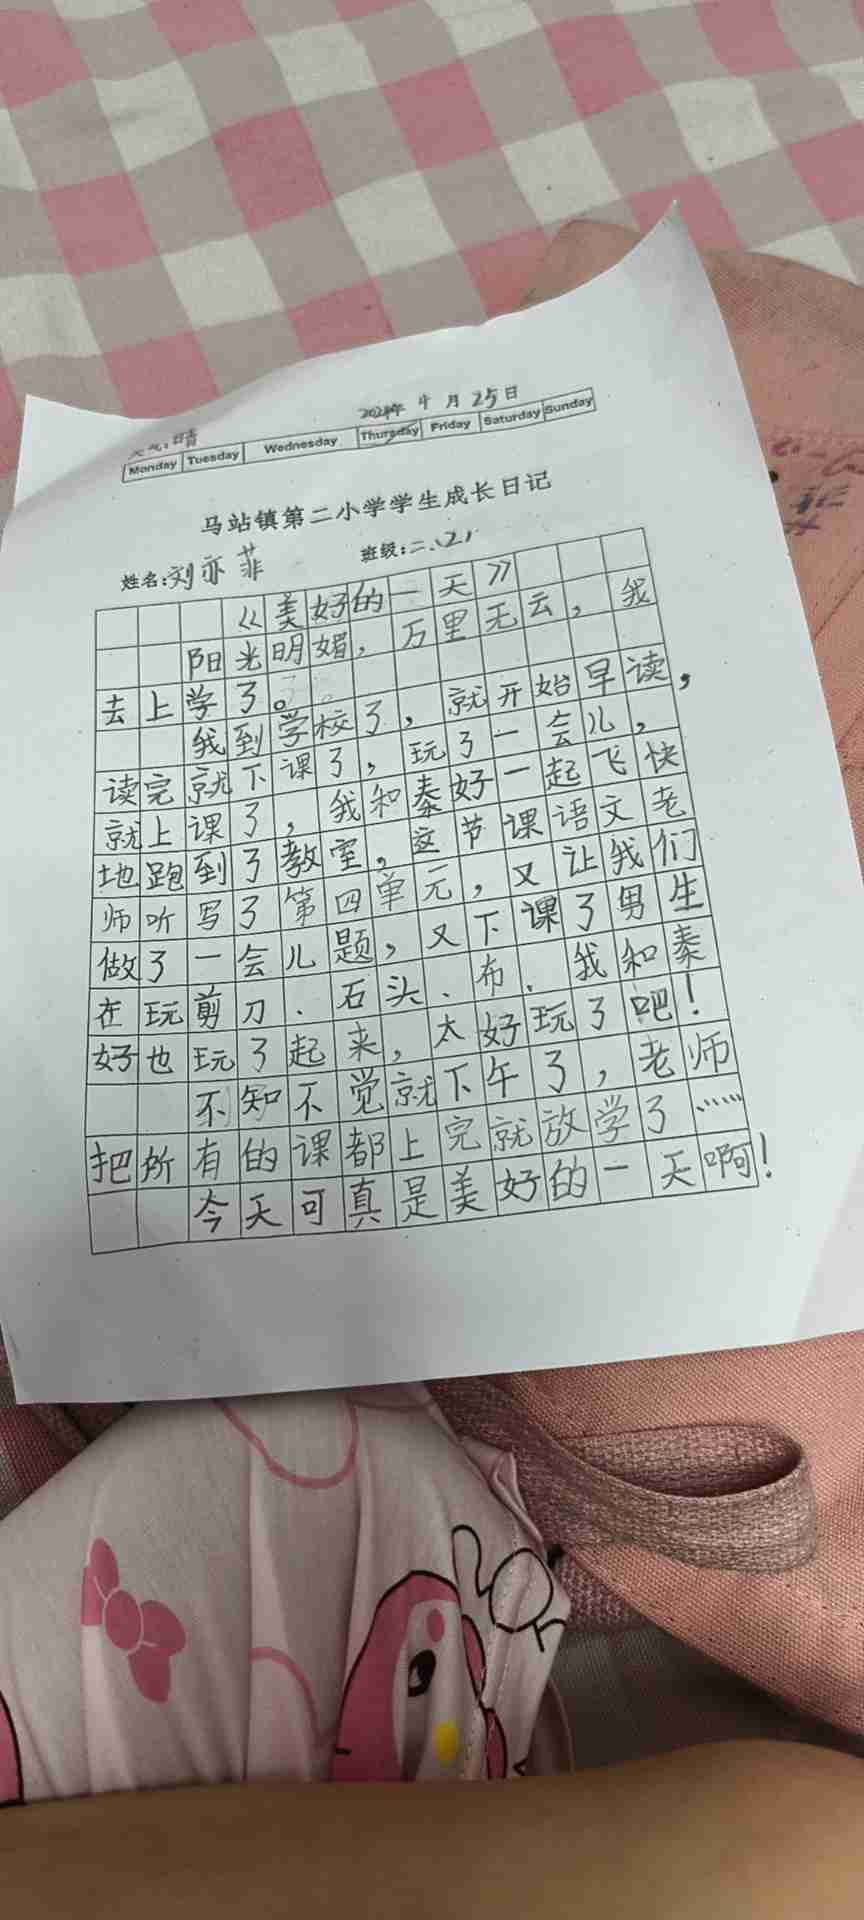 2024年 4月25日
天气:晴
Monday Tuesday Wednesday Thursday Friday Saturday Sunday
马站镇第二小学学生成长日记
姓名:刘亦菲 班级:二、(2)
《美好的一天》
阳光明媚，万里无云，我
去上学了。
我到学校了，就开始早读，
读完就下课了，玩了一会儿，
就上课了，我和秦好一起飞快
地跑到了教室，这节课语文老
师听写了第四单元，又让我们
做了一会儿题，又下课了男生
在玩剪刀、石头、布，我和秦
好也玩了起来，太好玩了吧！
不知不觉就下午了，老师
把所有的课都上完就放学了……
今天可真是美好的一天啊！